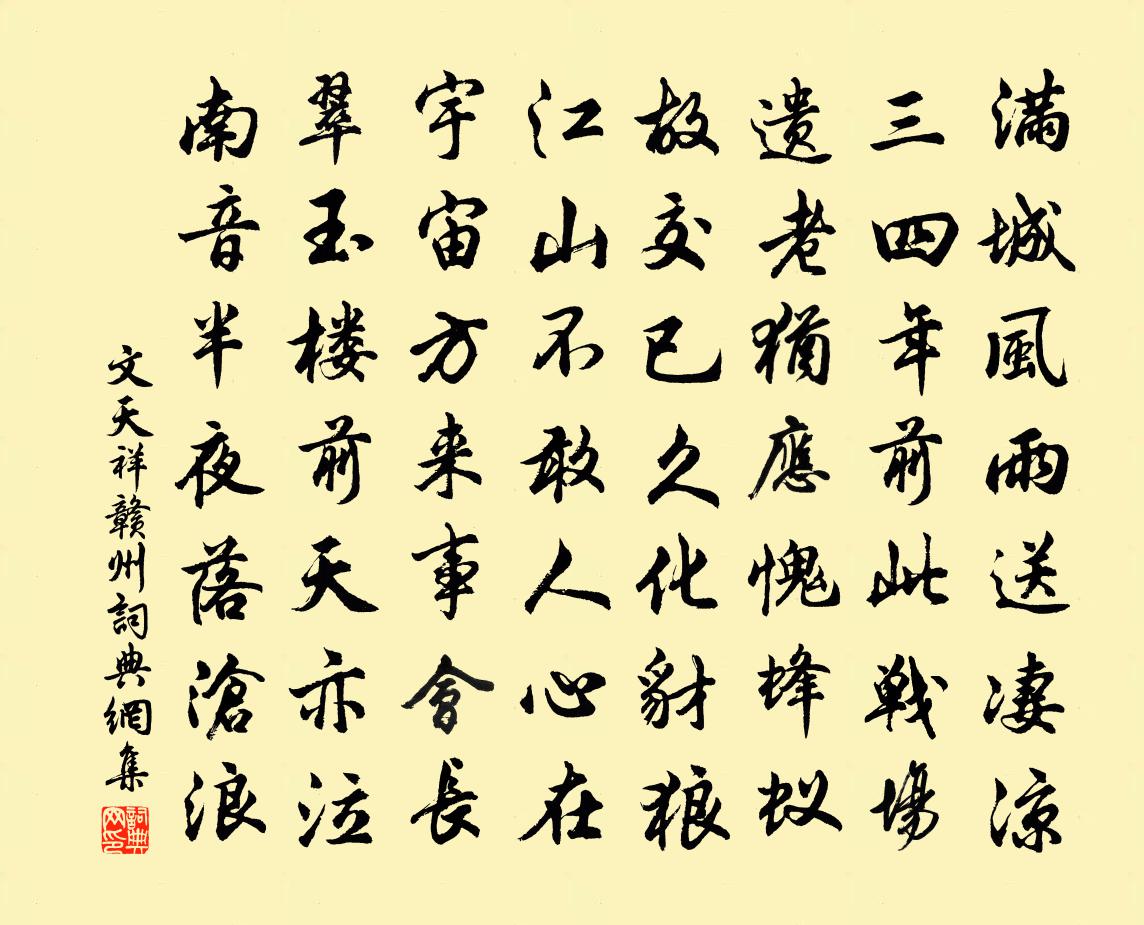 滿城風雨送凄凉
三四年前此戦場
遺老猶應愧蜂蚁
故交已久化豺狼
江山不敢人心在
宇宙方来事會長
翠玉楼前天亦泣
南音半夜落滄浪
文天祥贛州詞典網集
詞典网印